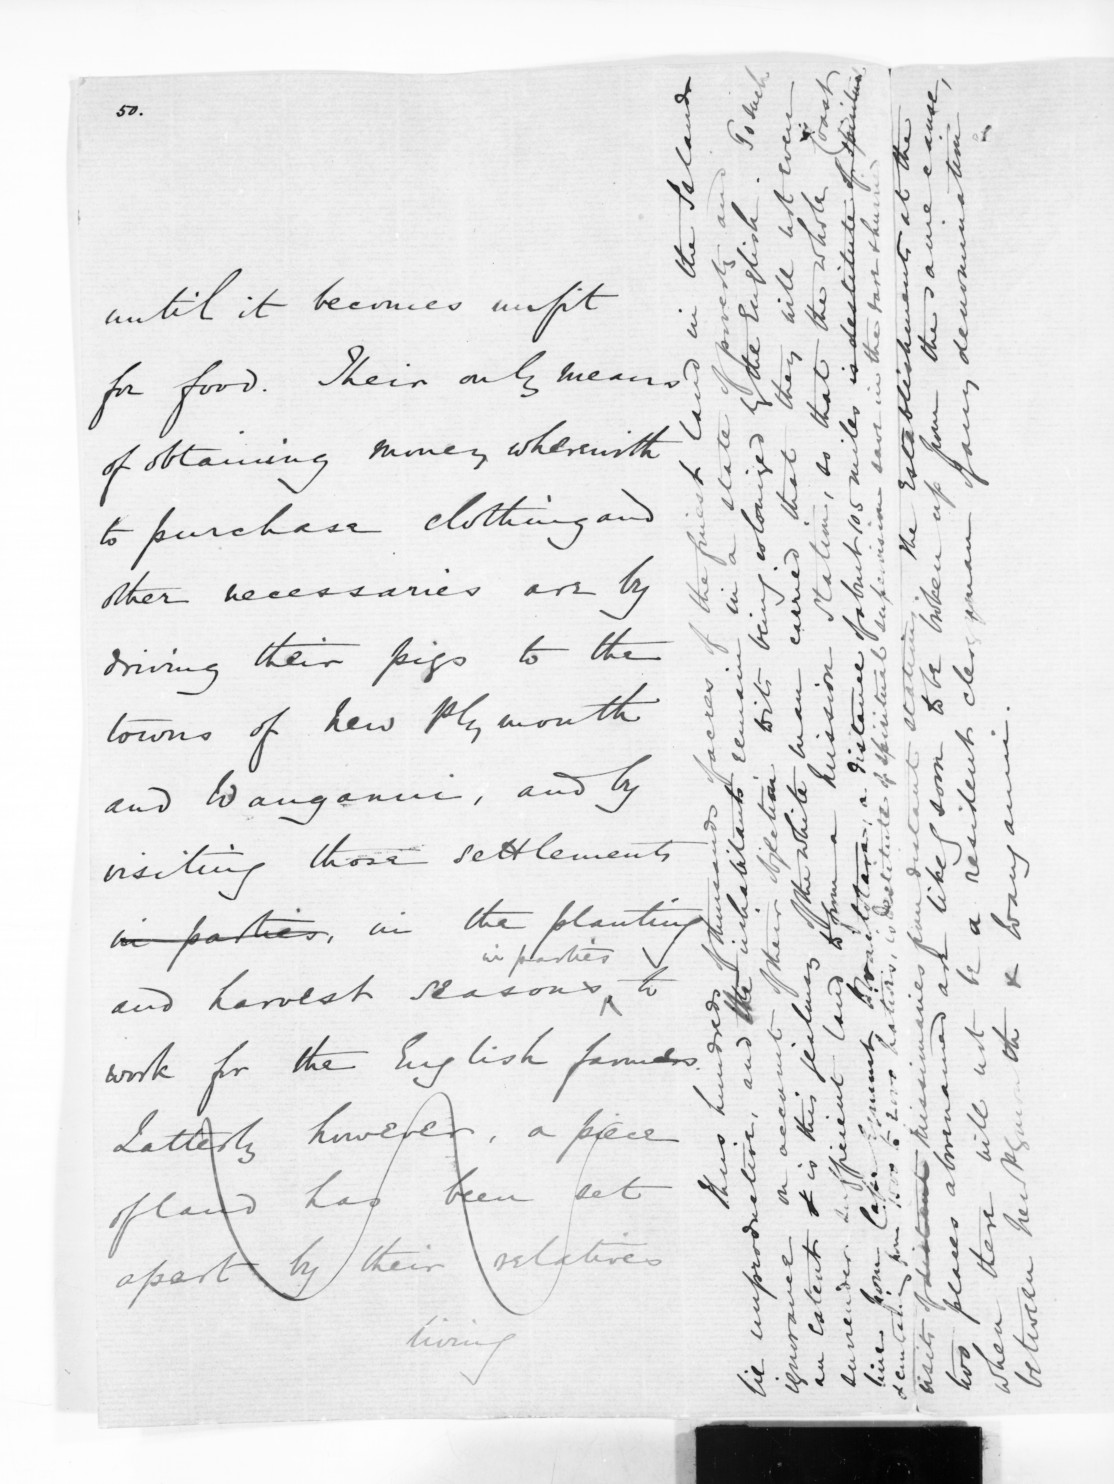 50.
until it becomes unfit
for food. Their only means
of obtaining money wherewith
to purchase clothing and
other necessaries are by
driving their pigs to the
towns of New Plymouth
and Wanganui, and by
visiting those settlements
in parties, in the planting
in parties
and harvest seasons, to
work for the English farmers.
Latterly however, a piece
of land has been set
apart by their relatives
living
Thus hundreds of thousands of acres of the finest land in the Island
lie unproductive, and the inhabitants remain in a state of poverty and
ignorance on account of their objection to its being colonized by the English. To such
an extent is this jealousy of the white man carried that they will not even
surrender sufficient land to form a Mission Station, so that the whole Coast
line from Cape Egmont to Waitotara, a distance of about 105 miles is destitute of spiritual
containing from 1500 to 2000 natives, is destitute of spiritual supervision save in the rare hurried
visits of distant Missionaries from distant stations. The Establishments at the
two places abovenamed are likely soon to be broken up from the same cause,
when there will not be a resident clergyman of any denomination
between New Plymouth & Wanganui.